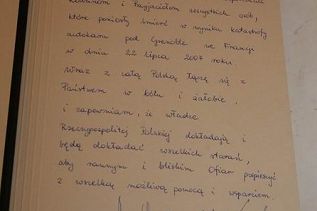 Rodzinom i Przyjaciołom wszystkich osób,
które poniosły śmierć w wyniku katastrofy
autokaru pod Grenoble we Francji
w dniu 22 lipca 2007 roku.
Wraz z całą Polską łączę się z
Państwem w bólu i żałobie
i zapewniam, że władze
Rzeczypospolitej Polskiej dokładają i
będą dokładać wszelkich starań,
aby rannym i bliskim Ofiar pospieszyć
z wszelką możliwą pomocą i wsparciem.